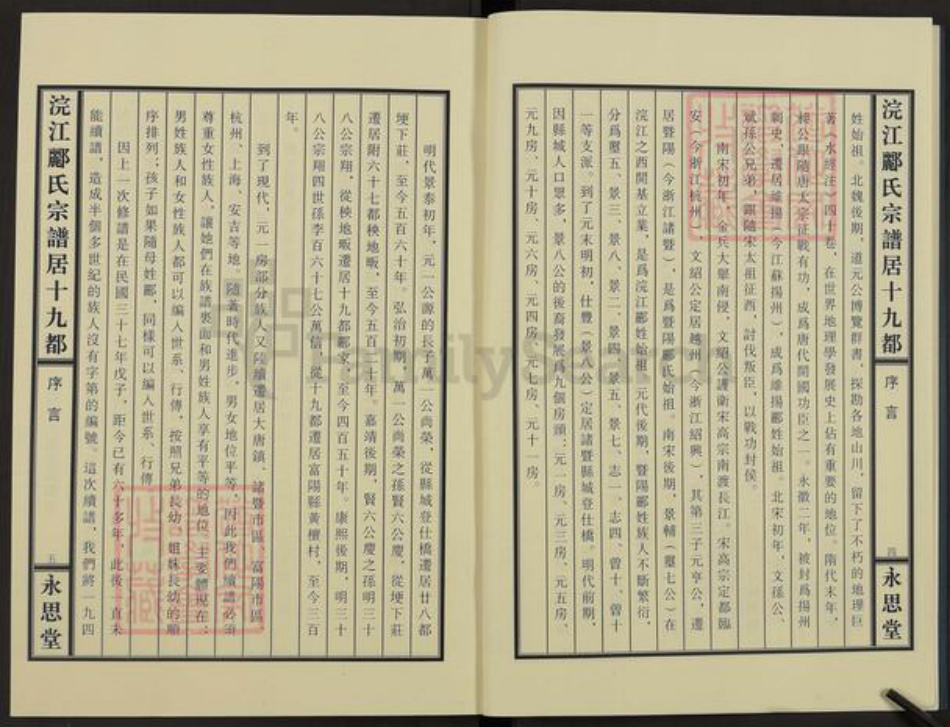 浣江酈氏宗譜居十九都
序言
四
永思堂
姓始祖。北魏後期，道元公博覽群書，探勘各地山川，留下了不朽的地理巨
著《水經注》四十卷，在世界地理學發展史上佔有重要的地位。隋代末年，
昶公跟隨唐太宗征戰有功，成爲唐代開國功臣之一。永徽二年，被封爲揚州
刺史，遷居維揚（今江蘇揚州），成爲維揚酈姓始祖。北宋初年，文孫公、
斌孫公兄弟，跟隨宋太祖征西，討伐叛臣，以戰功封侯。
南宋初年，金兵大舉南侵，文紹公護衛宋高宗南渡長江。宋高宗定都臨
安（今浙江杭州），文紹公定居越州（今浙江紹興），其第三子元亨公，遷
居暨陽（今浙江諸暨），是爲暨陽酈氏始祖。南宋後期，景輔（壓七公）在
浣江之西開基立業，是爲浣江酈姓始祖。元代後期，暨陽酈姓族人不斷繁衍，
分爲壓五、景三、景八、景二、景四、景五、景七、志一、志四、曾十、曾十
一等支派。到了元末明初，仕豐（景八公）定居諸暨縣城登仕橋。明代前期，
因縣城人口眾多，景八公的後裔發展爲九個房頭：元一房、元三房、元五房、
元九房、元十房、元六房、元四房、元七房、元十一房。
明代景泰初年，元一公源的長子萬一公尚榮，從縣城登仕橋遷居廿八都
埂下莊，至今五百六十年。弘治初期，萬一公尚榮之孫賢六公慶，從埂下莊
遷居附六十七都柍地畈，至今五百二十年。嘉靖後期，賢六公慶之孫明三十
八公宗翔，從柍地畈遷居十九都酈家，至今四百五十年。康熙後期，明三十
八公宗翔四世孫李百六十七公萬信，從十九都遷居富陽縣黃檀村，至今三百
年。
到了現代，元一房部分族人又陸續遷居大唐鎮、諸暨市區、富陽市區、
杭州、上海、安吉等地。隨著時代進步，男女地位平等，因此我們續譜必須
尊重女性族人，讓她們在族譜裏面和男姓族人享有平等的地位，主要體現在：
男姓族人和女性族人都可以編入世系、行傳，按照兄弟長幼、姐妹長幼的順
序排列；孩子如果隨母姓酈，同樣可以編入世系、行傳。
因上一次修譜是在民國三十七年戊子，距今已有六十多年，此後一直未
能續譜，造成半個多世紀的族人沒有字第的編號。這次續譜，我們將一九四
浣江酈氏宗譜居十九都
序言
五
永思堂
FamilySearch